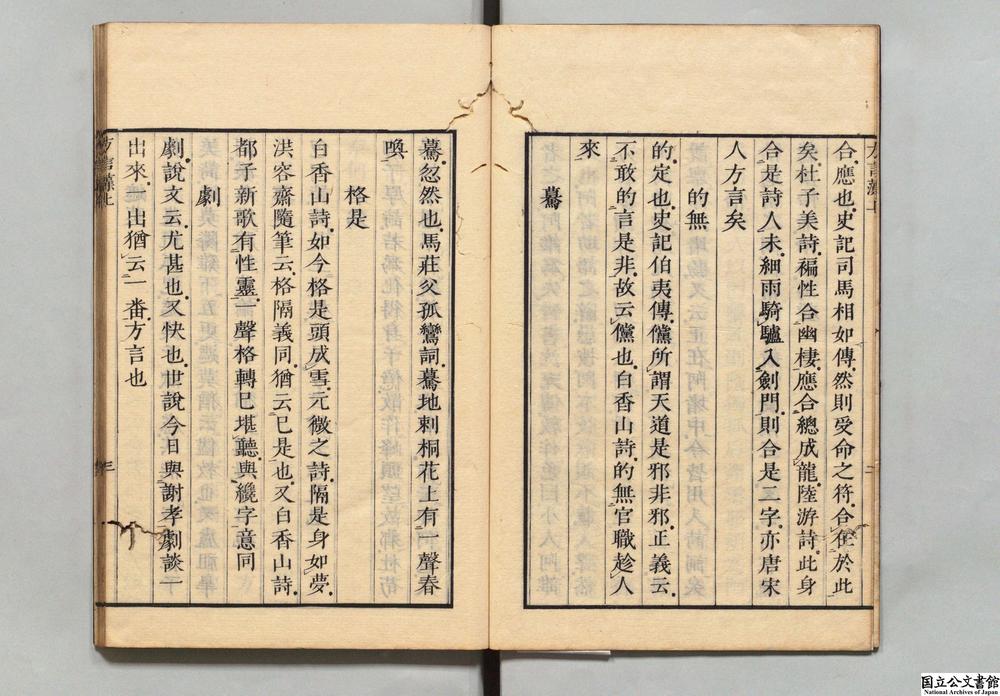 合應也史記司馬相如傳然則受命之符合在於此
矣杜子美詩褊性合幽棲應合總成龍陸游詩此身
合是詩人未細雨騎驢入劍門則合是二字亦唐宋
人方言矣
的無
的定也史記伯夷傳儻所謂天道是邪非邪正義云
不敢的言是非故云儻也白香山詩的無官職趁人
來
驀
驀忽然也馬莊父孤鸞詞驀地刺桐花上有一聲春
喚
格是
白香山詩如今格是頭成雪元微之詩隔是身如夢
洪容齋隨筆云格隔義同猶云已是也又白香山詩
都子新歌有性靈一聲格轉已堪聽與纔字意同
劇
劇說文云尤甚也又快也世說今日與謝孝劇談一
出來出猶云一番方言也
方言藻上
三
国立公文書館
National Archives of Japan